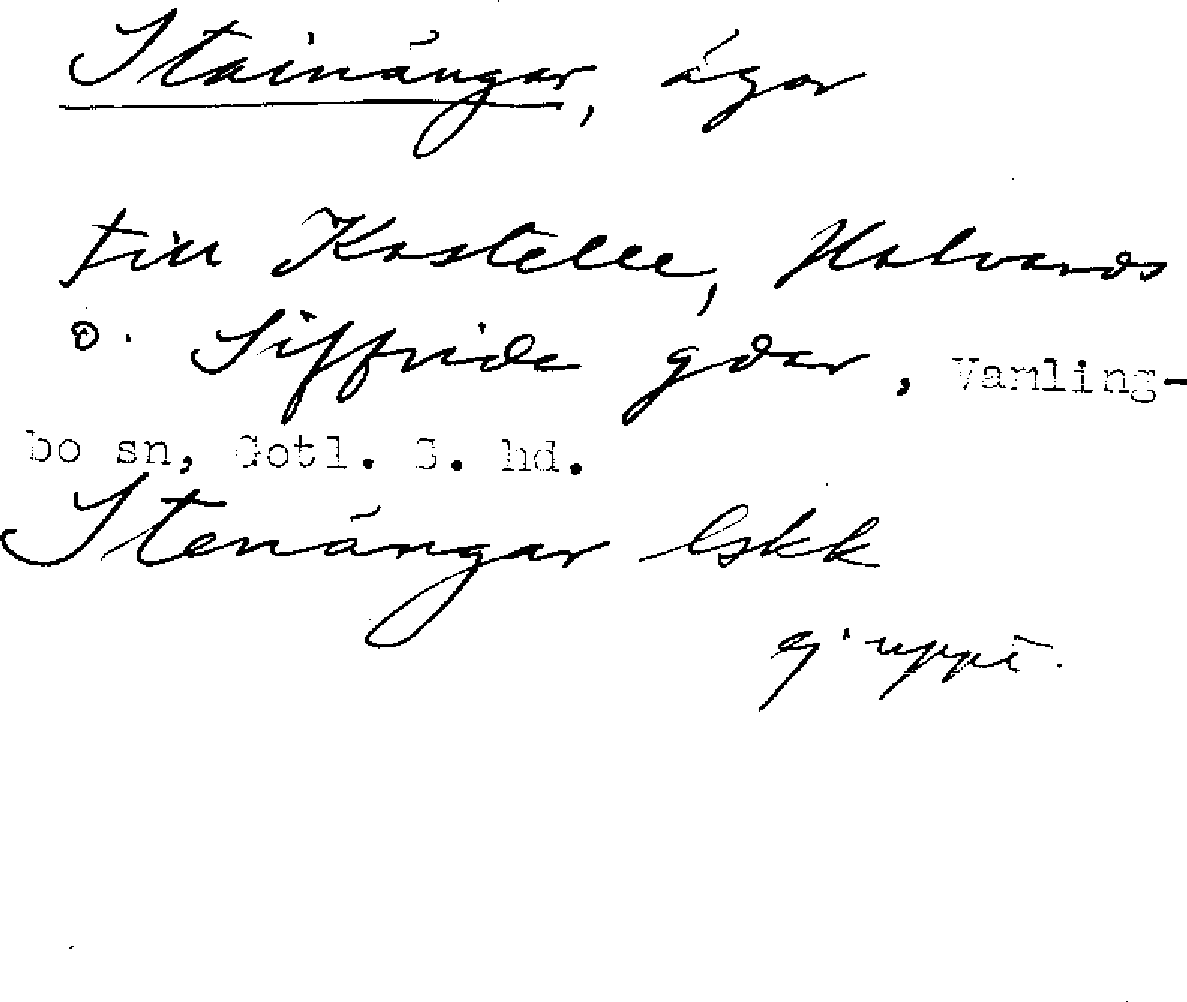 Stainängar, ägor
till Kastelle, Halvards
o. Siffride gdar, Vamling-
bo sn, Gotl. S. hd.
Stenängar lskk
ej uppt.